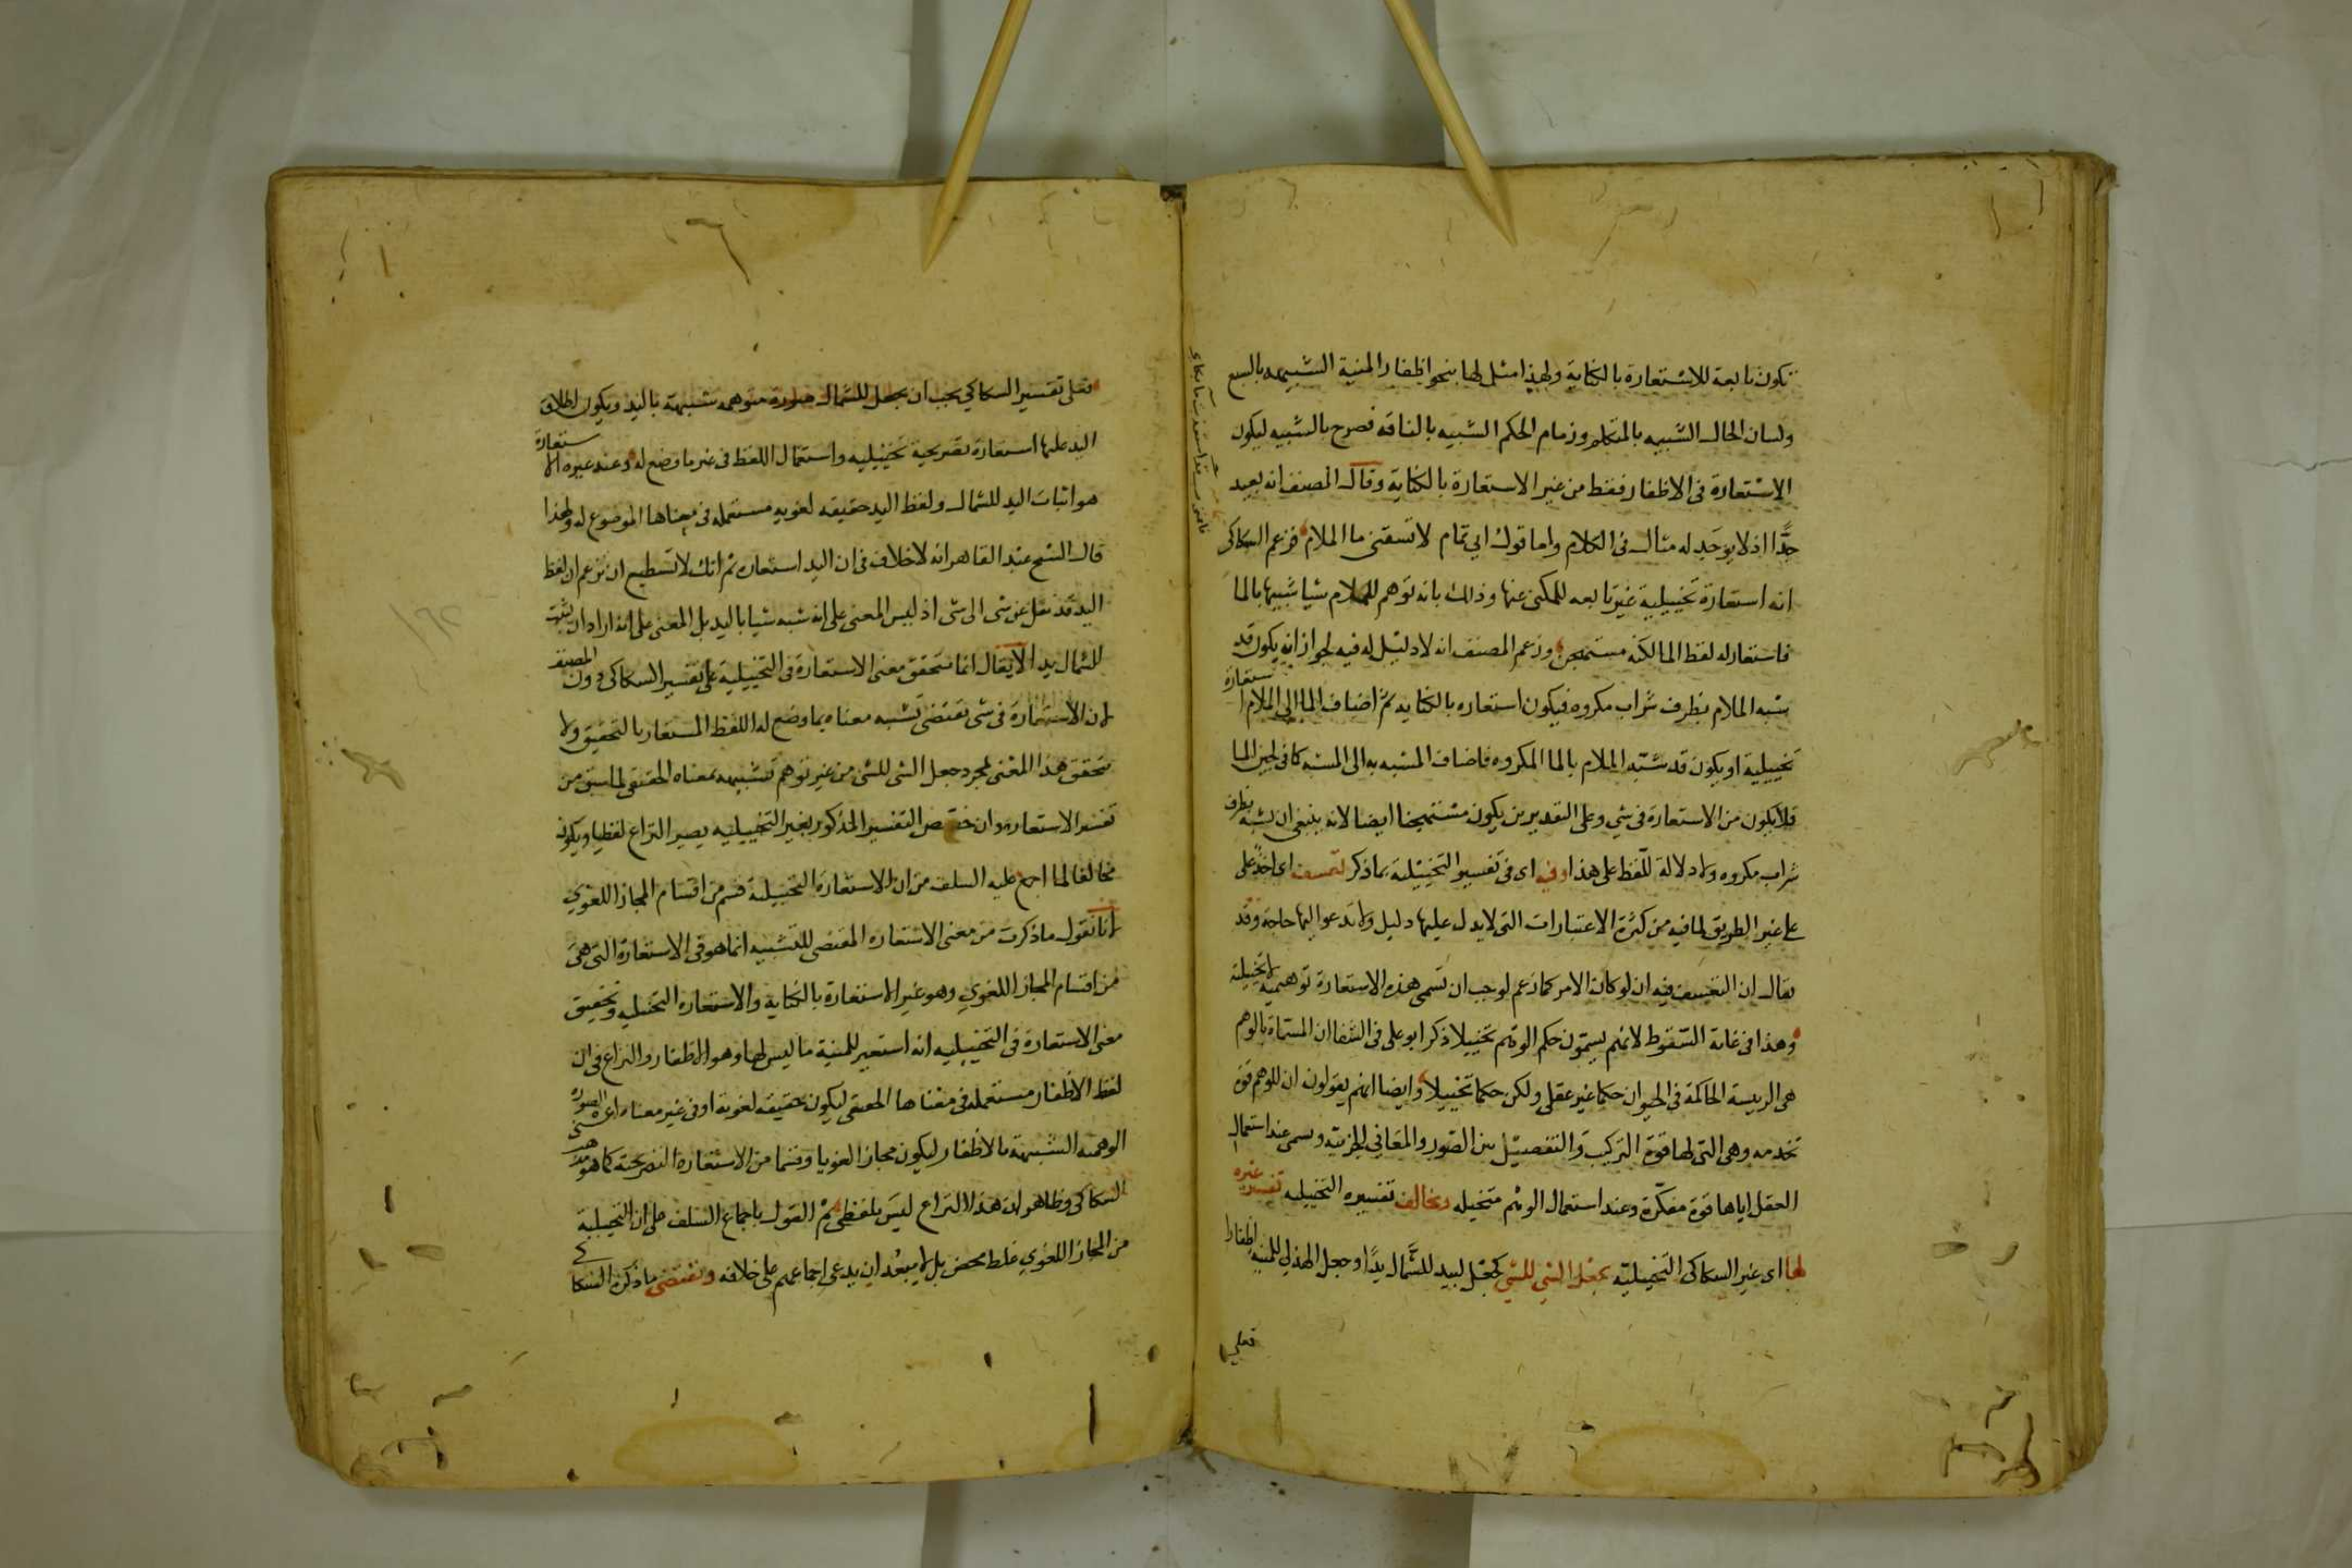 تكون تابعة للاستعارة بالكناية ولهذا مثل لها بنحو اظفار المنية الشبيهه بالسبع
ولسان الحال الشبيه بالمتكلم وزمام الحكم الشبيه بالناقه فصرح بالتشبيه ليكون
الاستعارة في الاظفار فقط من غير الاستعارة بالكناية وقال المصنف انه بعيد
جدًّا اذ لا يوجد له مثال في الكلام واما قول ابي تمام لا تسقني ما الملام فزعم السكاكى
انه استعارة تخييلية غير تابعه للمكنى عنها وذلك بانه توهم للملام شيا شبيها بالما
فاستعار له لفظ الما لكنه مستهجن وزعم المصنف انه لا دليل له فيه لجواز انه يكون قد
شبه الملام بظرف شراب مكروه فيكون استعاره بالكنايه ثم اضاف الما الى الملام استعارة
تخييلية او يكون قد شبه الملام بالما المكروه فاضاف المشبه به الى المشبه كما فى لجين الما
فلا يكون من الاستعارة في شي وعلى التقديرين يكون مستهجنا ايضا لانه ينبغى ان يشبه بظرف
شراب مكروه ولا دلالة للفظ على هذا وفيه اى فى تفسير التخييلية بما ذكر تعسف اى اخذ على
على غير الطريق لما فيه من كثرة الاعتبارات التى لا يدل عليها دليل ولا تدعو اليها حاجة وقد
يقال ان التعسف فيه ان لو كان الامر كما زعم لوجب ان تسمى هذه الاستعارة توهيمية لا تخييلية
وهذا فى غاية السقوط لانهم يسمون حكم الوهم تخييلا ذكر ابو على فى الشفا ان المسماة بالوهم
هى الرييسة الحاكمة فى الحيوان حكما غير عقلى ولكن حكما تخييلا وايضا انهم يقولون ان للوهم قوة
تخدمه وهى التى لها قوة التركيب والتفصيل بين الصور والمعانى الجزيية وتسمى عند استعمال
العقل اياها قوة مفكرة وعند استعمال الوهم متخيله ويخالف تفسيره التخييليه تفسير غيره
لها اى غير السكاكى التخييلية بجعل الشي للشي كجعل لبيد للشمال يدًا وجعل الهذلي للمنيه اظفارا
فعلى
فعلى تفسير السكاكي يجب ان يجعل للشمال صورة متوهمه شبيهة باليد ويكون اطلاق
اليد عليها استعارة تصريحية تخييليه واستعمال اللفظ فى غير ما وضع له وعند غيره الاستعارة
هو اثبات اليد للشمال ولفظ اليد حقيقه لغويه مستعمله فى معناها الموضوع له ولهذا
قال الشيخ عبد القاهر انه لا خلاف فى ان اليد استعاره ثم انك لا تستطيع ان تزعم ان لفظ
اليد قد نقل عن شى الى شى اذ ليس المعنى على انه شبه شيا باليد بل المعنى على انه اراد ان يثبت
للشمال يدا لا يقال انما يتحقق معنى الاستعارة فى التخييلية على تفسير السكاكى دون المصنف
لان الاستعارة فى شى تقتضى تشبيه معناه بما وضع له اللفظ المستعار بالتحقيق ولا
يتحقق هذا المعنى لمجرد جعل الشى للشى من غير توهم تشبيهه بمعناه الحقيقى لما سبق من
تفسير الاستعاره وان خصص التفسير المذكور بغير التخييليه يصير النزاع لفظيا ويكون
مخالفا لما اجمع عليه السلف من ان الاستعارة التخييلية قسم من اقسام المجاز اللغوي
لانا نقول ما ذكرت من معنى الاستعاره المقتضى للتشبيه انما هو فى الاستعارة التى هى
من اقسام المجاز اللغوي وهو غير الاستعارة بالكناية والاستعاره التخييليه وتحقيق
معنى الاستعارة فى التخييليه انه استعير للمنية ما ليس لها وهو الاظفار والنزاع فى ان
لفظ الاظفار مستعمله فى معناها الحقيقى ليكون حقيقه لغوية او فى غير معناه اعنى الصورة
الوهميه الشبيهة بالاظفار ليكون مجازا لغويا وقسما من الاستعاره التصريحية كما هو مذهب
السكاكى وظاهر ان هذا النزاع ليس بلفظى ثم القول باجماع السلف على ان التخييلية
من المجاز اللغوي غلط محض بل لا يبعد ان يدعى اجماعهم على خلافه ويقتضى ما ذكره السكاكي